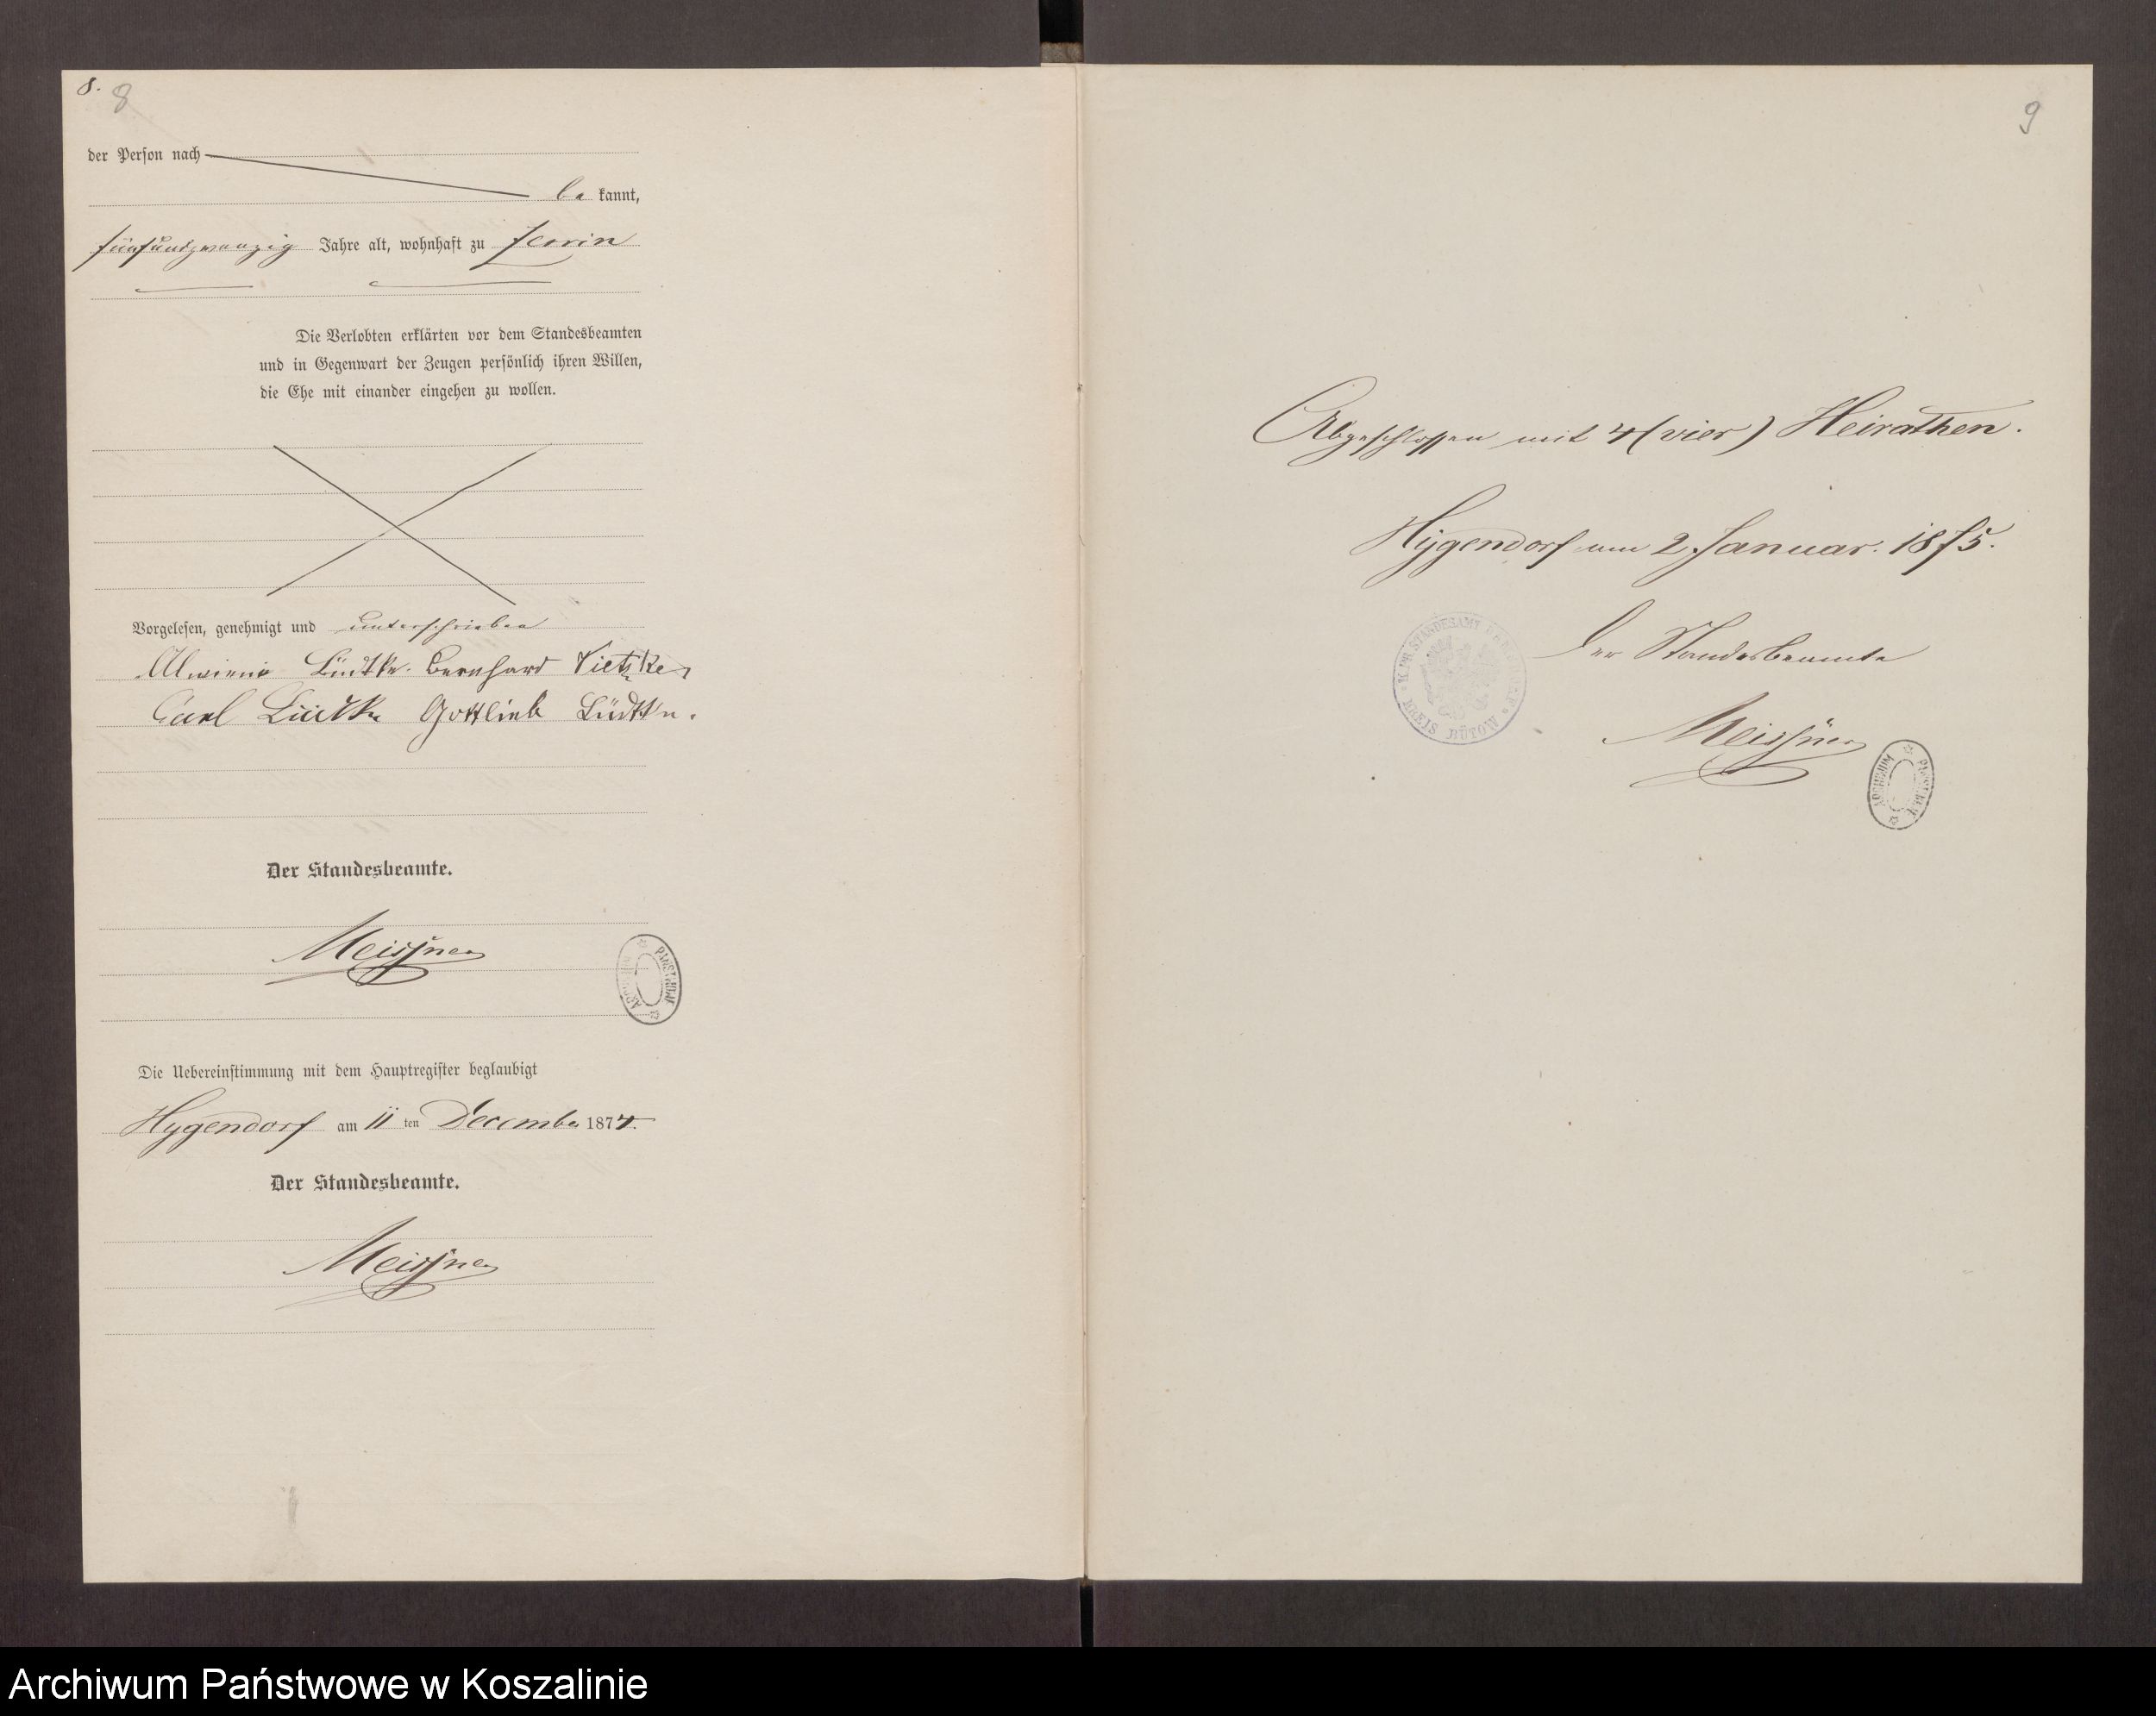 8.
8
der Person nach
be kannt,
fünfundzwanzig Jahre alt, wohnhaft zu
Die Verlobten erklärten vor dem Standesbeamten
und in Gegenwart der Zeugen persönlich ihren Willen,
die Ehe mit einander eingehen zu wollen.
Vorgelesen, genehmigt und unterschrieben
Lüdtke. Bernhard Vietzke
Carl Lüdtke Gottlieb Lüdtke.
Der Standesbeamte.
Meissner
Die Uebereinstimmung mit dem Hauptregister beglaubigt
Hygendorf am 11 ten December 1874.
Der Standesbeamte.
Meissner
9
Abgeschlossen mit 4 (vier) Heirathen.
Hygendorf am 2 Januar. 1875.
Der Standesbeamte
Meissner
STANDESAMT
KREIS BÜTOW
ARCHIWUM
Archiwum Państwowe w Koszalinie